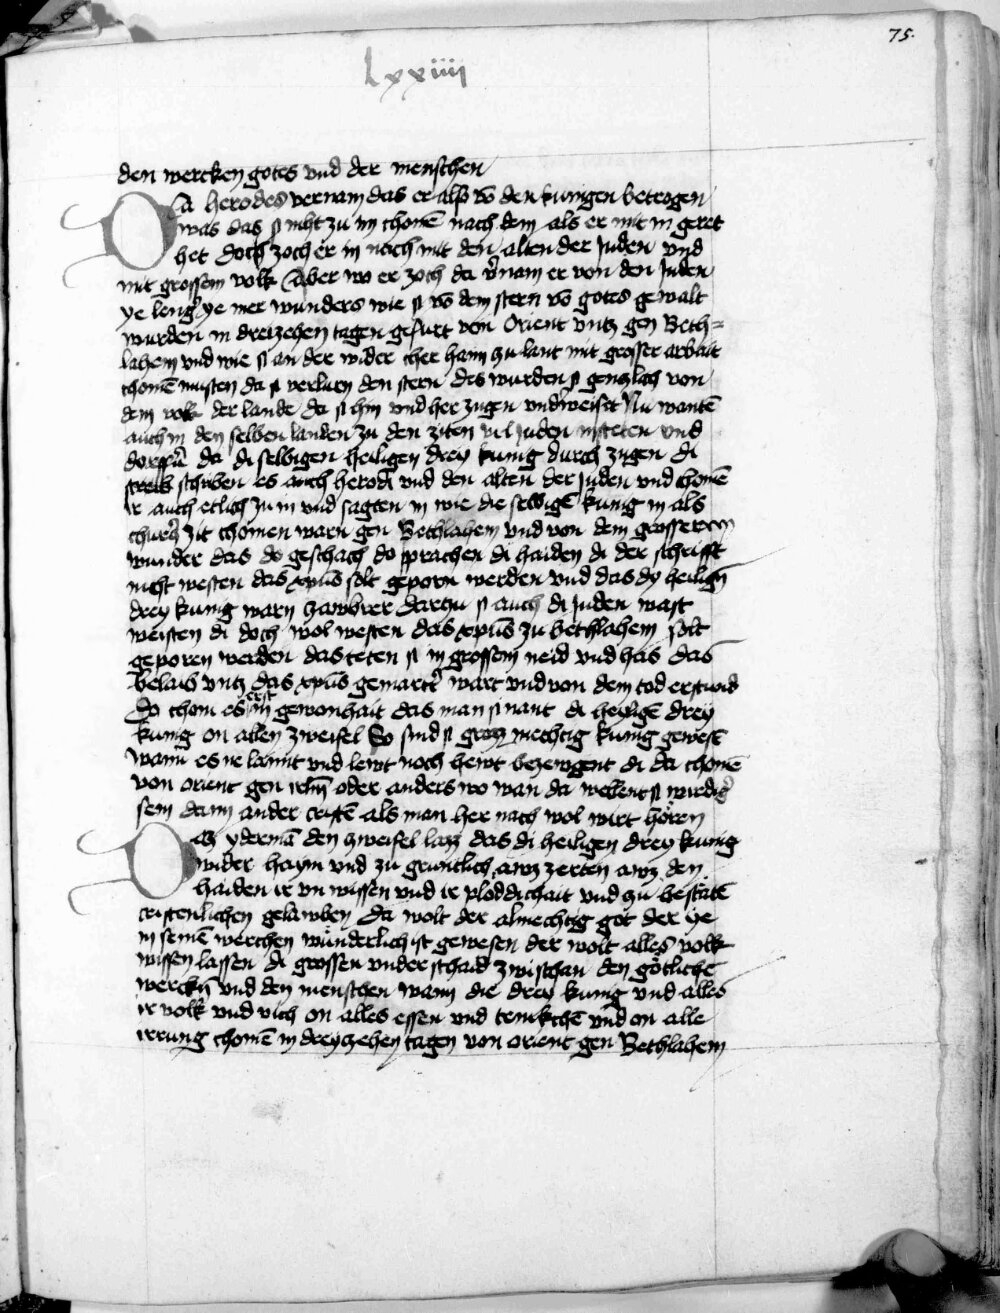 75.
Lxxiiii
den wercken gotes vnd der menschen
Da herodes vernam das er also võ den kunigen betrogen
was das si niht zu im chomẽ nach dem als er mit in geret
het Doch zoch er in noch mit den alten der Juden vnd
mit grossem volk Aber wo er zoch da v̾nam er von den Juden
ye leng̾ ye mer wunders wie si võ dem stern võ gotes gewalt
wurden in dreizehen tagen gefurt von Orient vntz gen Beth=
lahem vnd wie si an der wider cher haim zu lant mit grosser arbait
chomẽ musten da si verlurn den stern des wurden si gentzlich von
dem volk der lande da si hin vnd her zugen vnd̾weiset Nu wantẽ
auch in den selben landen zu den ziten vil Juden in steten vnd
dorffern̄ da di selbigen heiligen drey kunig durch zugen di
schriben es auch herodi vnd den alten der Juden vnd chomẽ
ir auch etlich zu in vnd sagten in wie die selbigẽ kunig in als
churtz̾ zit chomen warn gen Bethlahem vnd von dem grosseren
wunder das do geschach do sprachen di haiden di der schrifft
nicht westen das xpũs solt geporn werden vnd das dy heilign̄
drey kunig warn zawbrer dartzu si auch di Juden vast
weisten di doch wol westen das xpũs zu bethlahem solt
geporen werden das teten si in grossem neid vnd has das
belaib vntz das xpũs gemart̾t wart vnd von dem tod erstund
Do chom es erst in gewonhait das man si nant di heiligẽ drey
kunig on allen zweifel So sind si gros mechtig kunig gewesẽ
wann es ie lannt vnd lewt noch hewt bezewgent di da chomẽ
von orient gen irlm̄ oder anders wo wan da wellent si wirdig̾
sein dann ander cristẽ als man her nach wol wirt hören
Daz ydermã den zweifel lazz das di heiligen drey kunig
wider haym vnd zu gruntlich awz zerten awz den
haiden ir vn wissen vnd ir plöddichait vnd zu bestatẽ
cristenlichen gelawben Da wolt der almechtig got der ye
in seinẽ werchen wunderlich ist gewesen der wolt alles volk
wissen lassen di grossen vnderschaid zwischan den götlichẽ
werckn̄ vnd den menschen wann die drey kunig vnd alles
ir volk vnd vich on alles essen vnd trinkchẽ vnd on alle
irrung chomẽ in dreyzehen tagen von orient gen Bethlahem